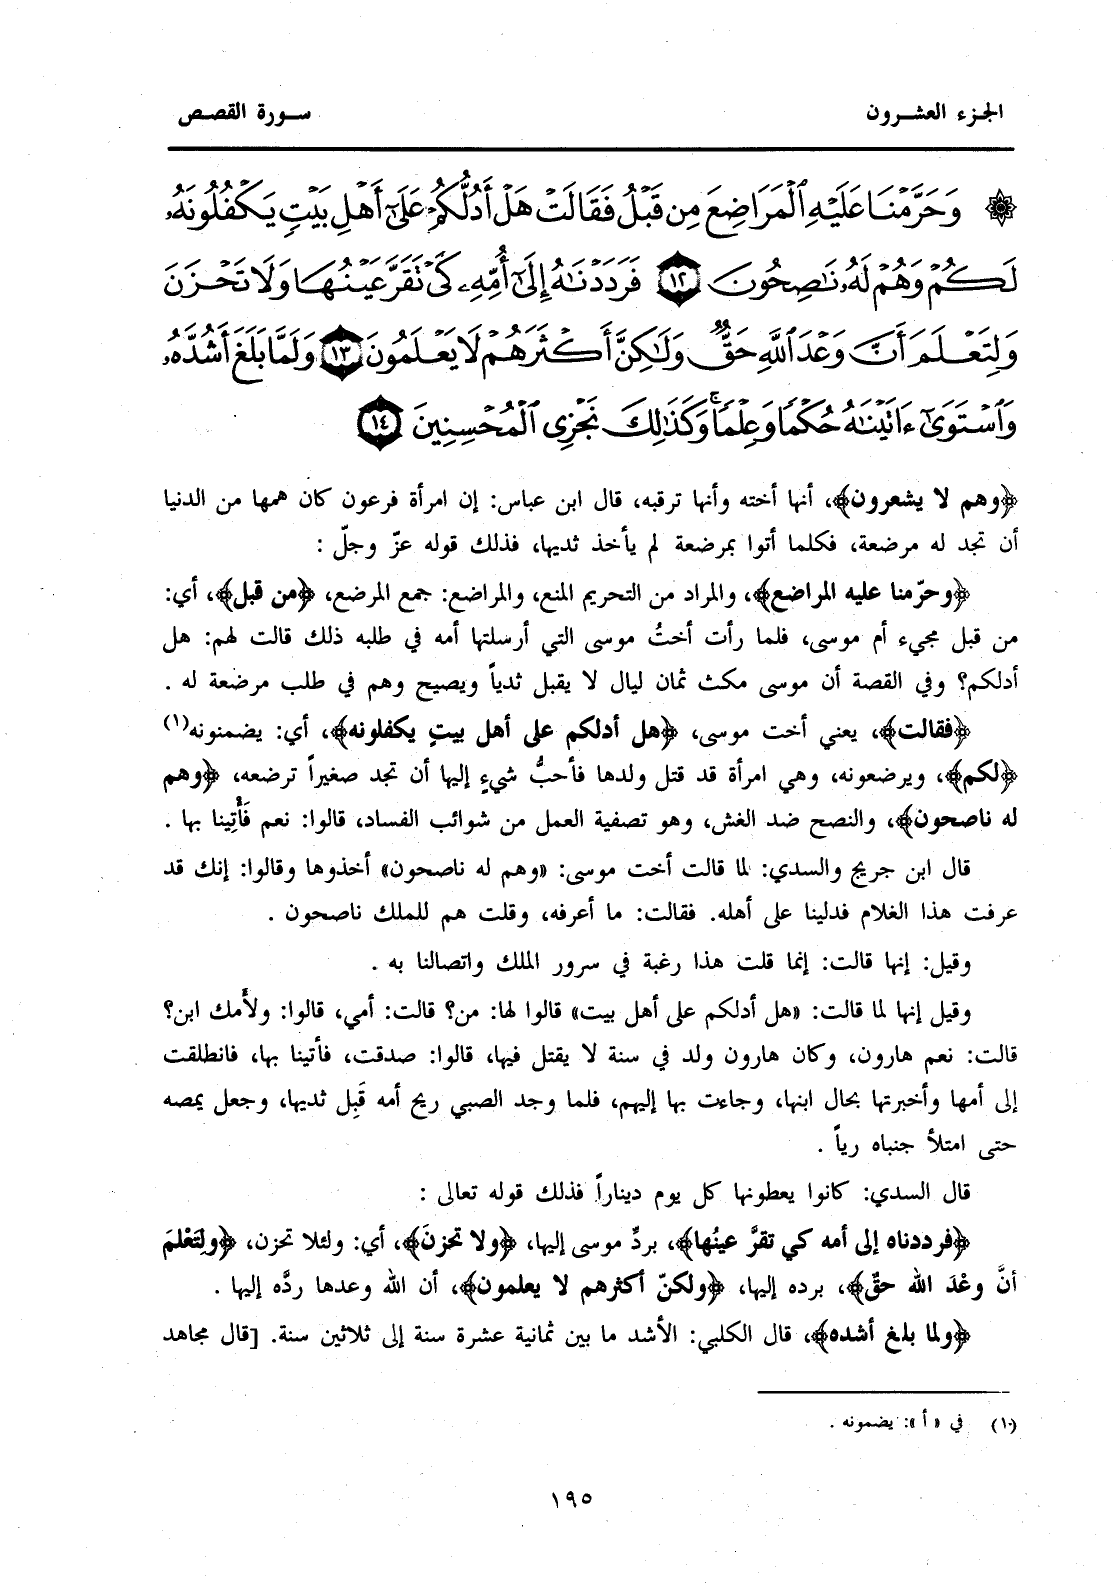 الجزء العشرون
سورة القصص
۞ وَحَرَّمْنَا عَلَيْهِ ٱلْمَرَاضِعَ مِن قَبْلُ فَقَالَتْ هَلْ أَدُلُّكُمْ عَلَىٰٓ أَهْلِ بَيْتٍ يَكْفُلُونَهُۥ
لَكُمْ وَهُمْ لَهُۥ نَٰصِحُونَ ١٢ فَرَدَدْنَٰهُ إِلَىٰٓ أُمِّهِۦ كَىْ تَقَرَّ عَيْنُهَا وَلَا تَحْزَنَ
وَلِتَعْلَمَ أَنَّ وَعْدَ ٱللَّهِ حَقٌّ وَلَٰكِنَّ أَكْثَرَهُمْ لَا يَعْلَمُونَ ١٣ وَلَمَّا بَلَغَ أَشُدَّهُۥ
وَٱسْتَوَىٰٓ ءَاتَيْنَٰهُ حُكْمًا وَعِلْمًا ۚ وَكَذَٰلِكَ نَجْزِى ٱلْمُحْسِنِينَ ١٤
﴿وهم لا يشعرون﴾، أنها أخته وأنها ترقبه، قال ابن عباس: إن امرأة فرعون كان همها من الدنيا
أن تجد له مرضعة، فكلما أتوا بمرضعة لم يأخذ ثديها، فذلك قوله عزّ وجلّ :
﴿وحرّمنا عليه المراضع﴾، والمراد من التحريم المنع، والمراضع: جمع المرضع، ﴿من قبل﴾، أي:
من قبل مجيء أم موسى، فلما رأت أختُ موسى التي أرسلتها أمه في طلبه ذلك قالت لهم: هل
أدلكم؟ وفي القصة أن موسى مكث ثمان ليال لا يقبل ثدياً ويصيح وهم في طلب مرضعة له .
﴿فقالت﴾، يعني أخت موسى، ﴿هل أدلكم على أهل بيتٍ يكفلونه﴾، أي: يضمنونه(١)
﴿لكم﴾، ويرضعونه، وهي امرأة قد قتل ولدها فأحبُّ شيءٍ إليها أن تجد صغيراً ترضعه، ﴿وهم
له ناصحون﴾، والنصح ضد الغش، وهو تصفية العمل من شوائب الفساد، قالوا: نعم فَأْتِينا بها .
قال ابن جريج والسدي: لما قالت أخت موسى: «وهم له ناصحون» أخذوها وقالوا: إنك قد
عرفت هذا الغلام فدلينا على أهله. فقالت: ما أعرفه، وقلت هم للملك ناصحون .
وقيل: إنها قالت: إنما قلت هذا رغبة في سرور الملك واتصالنا به .
وقيل إنها لما قالت: «هل أدلكم على أهل بيت» قالوا لها: من؟ قالت: أمي، قالوا: ولأمك ابن؟
قالت: نعم هارون، وكان هارون ولد في سنة لا يقتل فيها، قالوا: صدقت، فأتينا بها، فانطلقت
إلى أمها وأخبرتها بحال ابنها، وجاءت بها إليهم، فلما وجد الصبي ريح أمه قَبِل ثديها، وجعل يمصه
حتى امتلأ جنباه رياً .
قال السدي: كانوا يعطونها كل يوم ديناراً فذلك قوله تعالى :
﴿فرددناه إلى أمه كي تقرَّ عينُها﴾، بردِّ موسى إليها، ﴿ولا تحزنَ﴾، أي: ولئلا تحزن، ﴿ولِتَعْلمَ
أنَّ وعْدَ الله حقٌ﴾، برده إليها، ﴿ولكنّ أكثرهم لا يعلمون﴾، أن الله وعدها ردَّه إليها .
﴿ولما بلغ أشده﴾، قال الكلبي: الأشد ما بين ثمانية عشرة سنة إلى ثلاثين سنة. [قال مجاهد
(١) في «أ»: يضمونه .
١٩٥